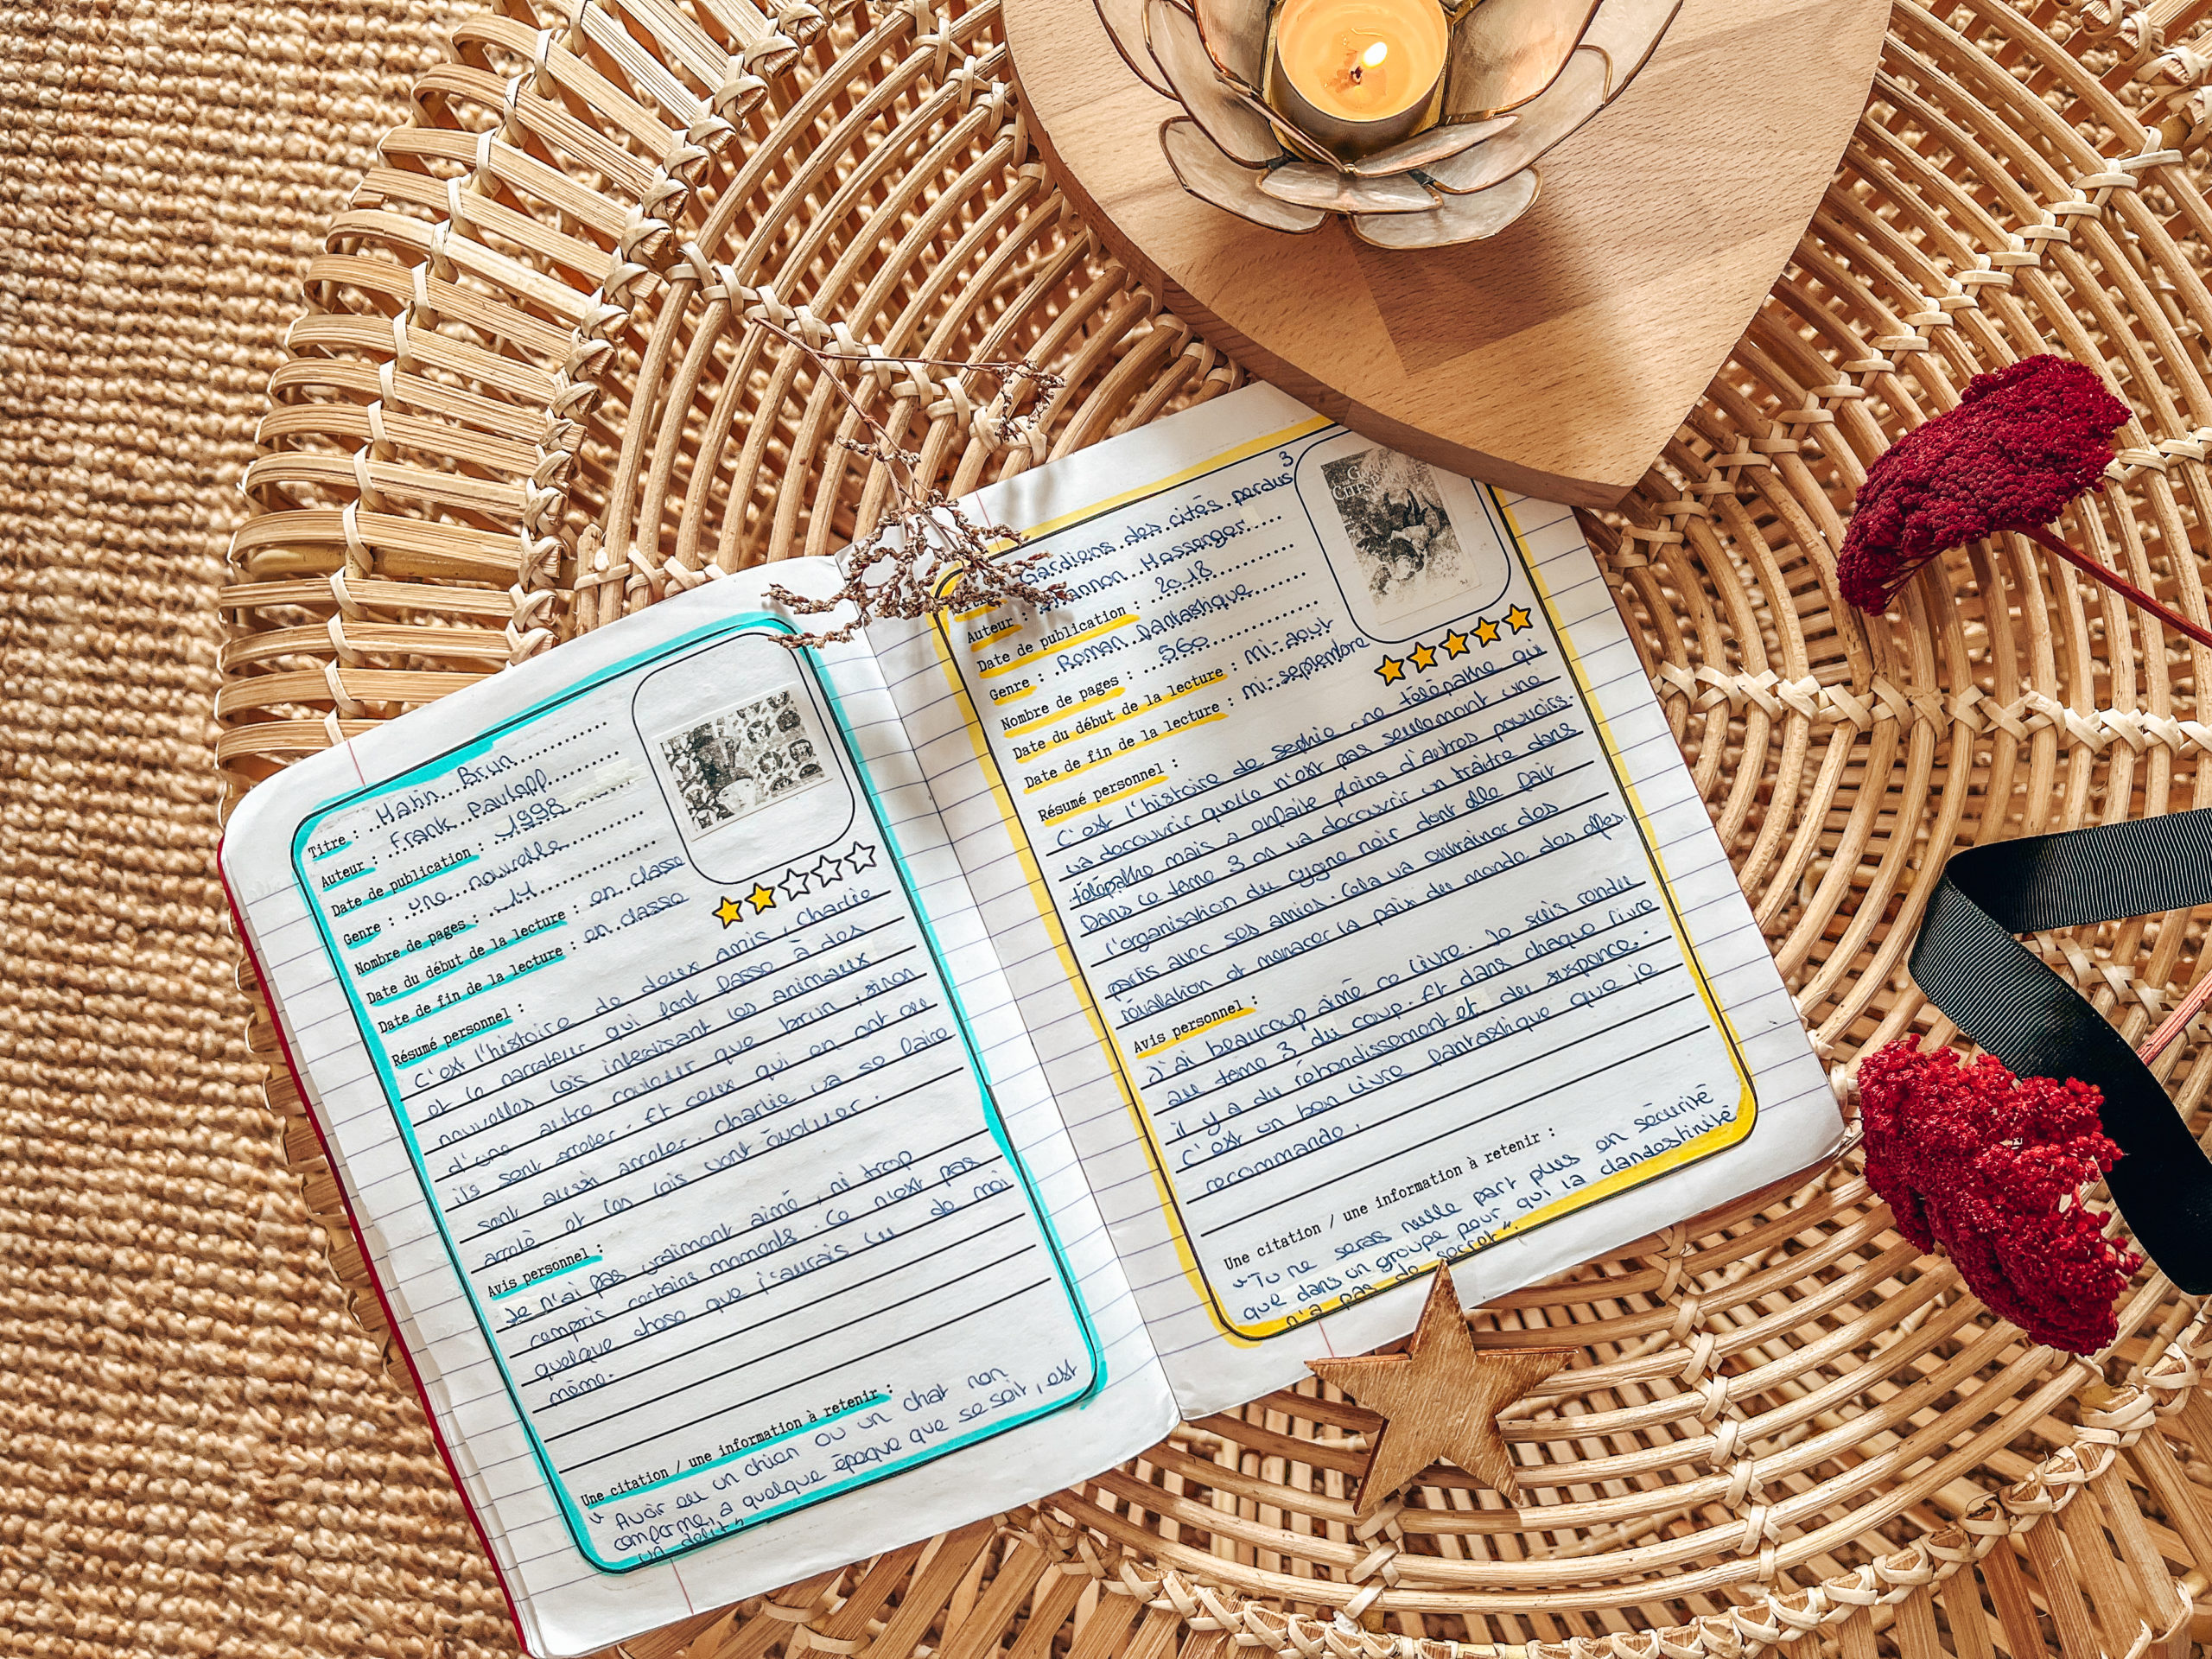 Titre : Matin Brun
Auteur : Frank Pavloff
Date de publication : 1998
Genre : une nouvelle
Nombre de pages : 11
Date du début de la lecture : en classe
Date de fin de la lecture : en classe
Résumé personnel :
C'est l'histoire de deux amis, Charlie
et le narrateur qui font passe à des
nouvelles lois interdisant les animaux
d'une autre couleur que brun, sinon
ils sont arreter. Et ceux qui en ont eu
sont aussi arreter. Charlie va se faire
arreté et les lois vont évoluer.
Avis personnel :
Je n'ai pas vraiment aimé, ni trop
compris certains momments. Ce n'est pas
quelque chose que j'aurais lu de moi
même.
Une citation / une information à retenir :
" Avoir eu un chien ou un chat non
conforme, a quelque époque que se soit, est
un delit "
3
Gardiens des cités perdus
Auteur : Shannon Messenger
Date de publication : 2018
Genre : Roman fantastique
Nombre de pages : 560
Date du début de la lecture : mi-aout
Date de fin de la lecture : mi-septembre
Résumé personnel :
C'est l'histoire de sophie une télépathe qui
va decouvrir quelle n'est pas seulement une
télépathe mais a enfaite pleins d'autres pouvoirs.
Dans ce tome 3 on va decouvrir un traitre dans
l'organisation du cygne noir dont elle fait
partis avec ses amies. Cela va entrainer des
révalation et menacer la paix du monde des elfes.
Avis personnel :
J'ai beaucoup aimé ce livre. Je suis rendu
au tome 3 du coup. Et dans chaque livre
il y a du rébondissement et du suspence.
C'est un bon livre fantastique que je
recommande.
Une citation / une information à retenir :
" Tu ne seras nulle part plus en sécurité
que dans un groupe pour qui la clandestinité
n'a pas de secret ".